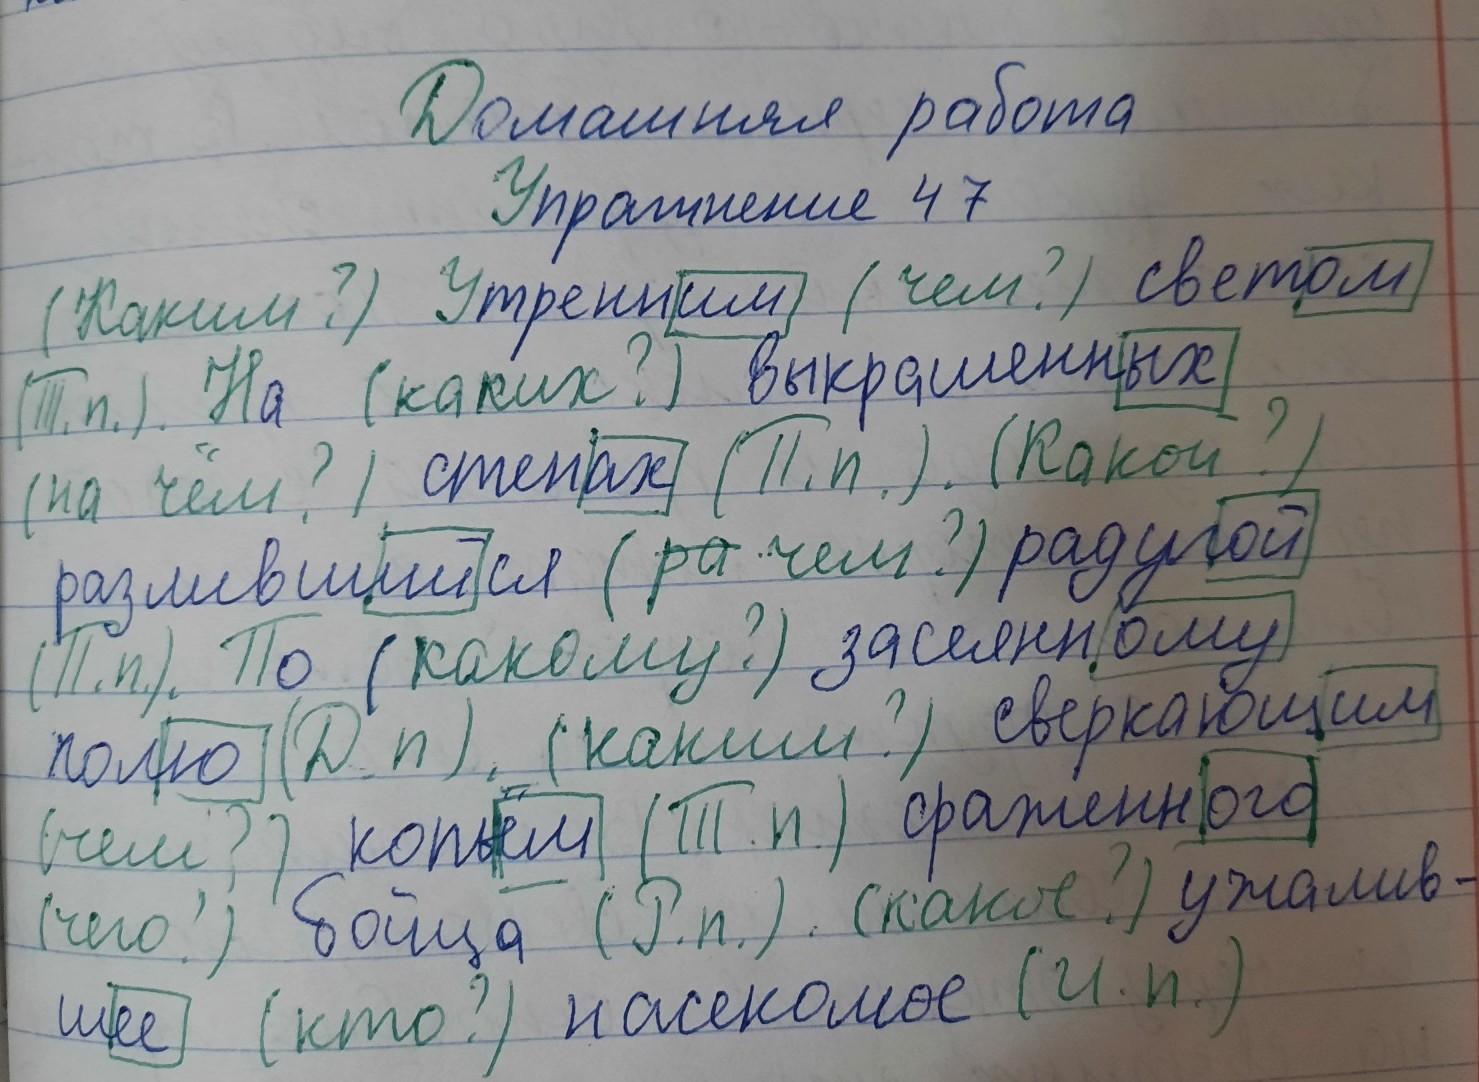 Домашняя работа
Упражнение 47
(Каким?) Утренним (чем?) светом
(Т.п.). На (каких?) выкрашенных
(на чём?) стенах (П.п.). (Какой?)
разлившийся (ра чем?) радугой
(П.п.). По (какому?) засеянному
полю (Д.п). (каким?) сверкающим
(чем?) копьём (Т.п.) сраженного
(чего?) бойца (Р.п.). (какое?) ужалив-
шее (кто?) насекомое (И.п.)